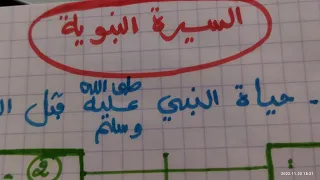 السيرة النبوية
حياة النبي صلى الله عليه وسلم قبل
2
2022.11.30